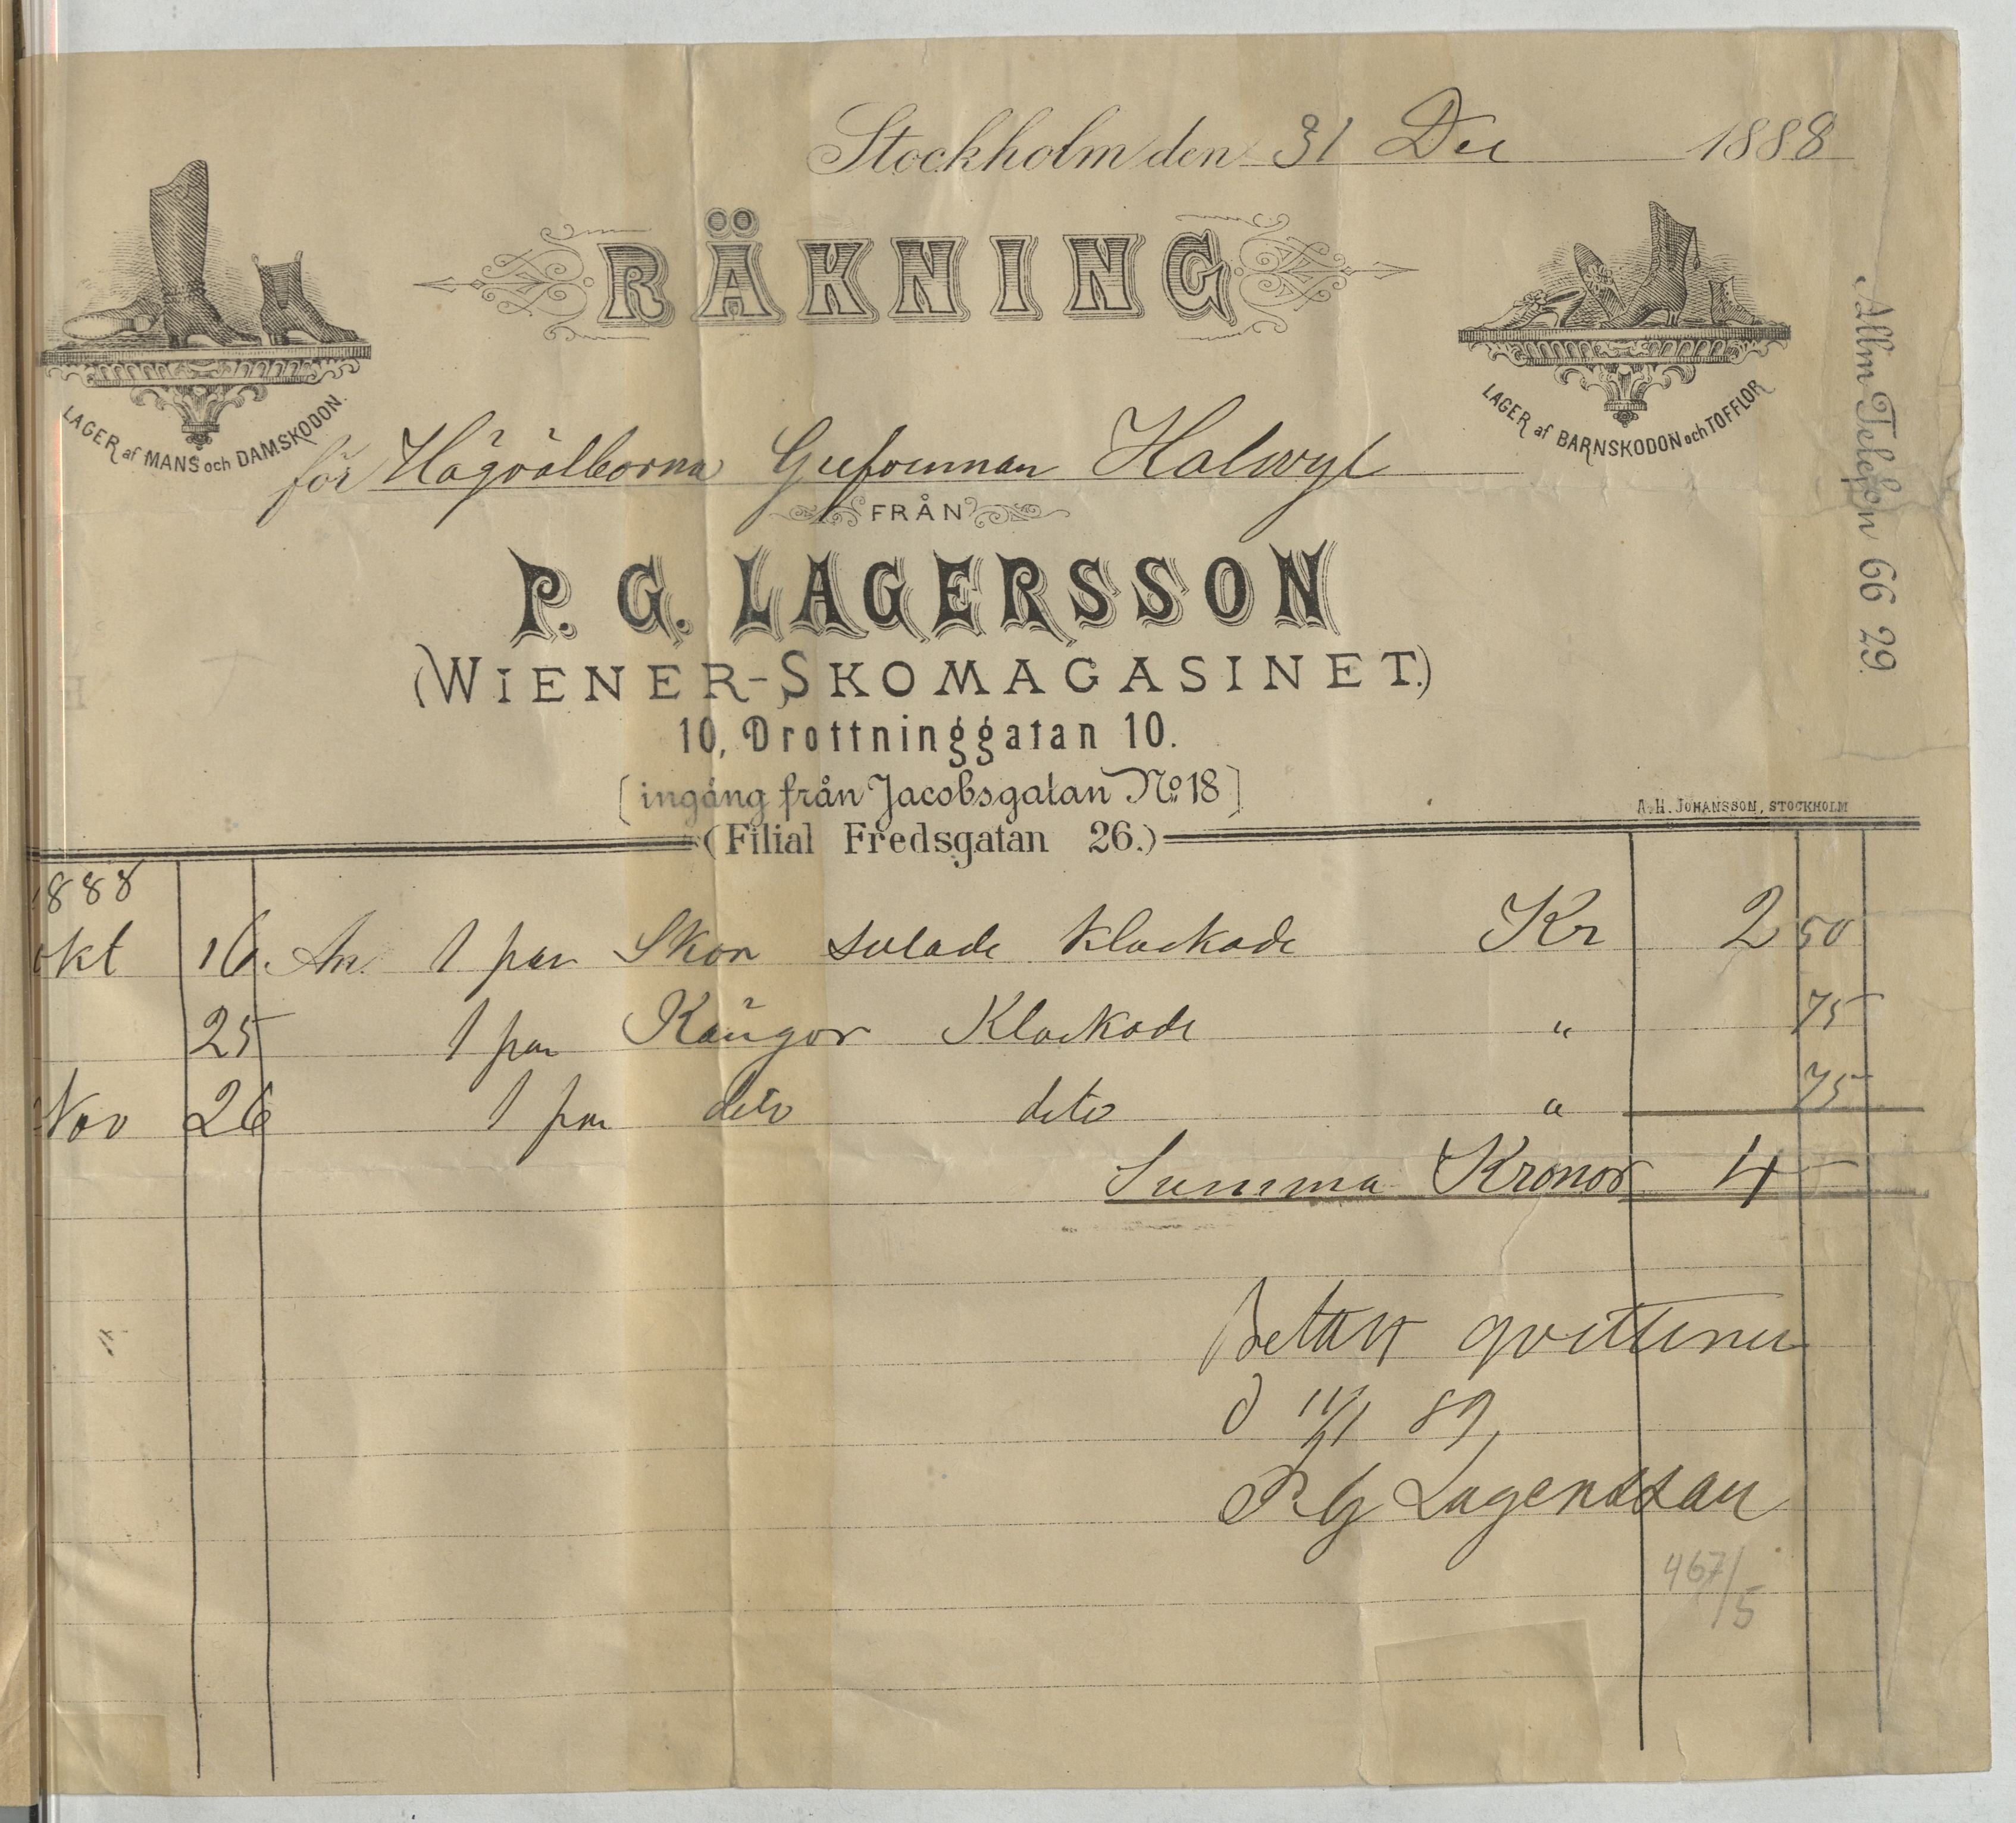 Stockholm den 31 Dec 1888
RÄKNING
LAGER af MANS och DAMSKODON.
LAGER af BARNSKODON och TOFFLOR
Allm Telefon 66 29.
för Högvälborna Grefvinnan Halwyl
FRÅN
P. G. LAGERSSON
(WIENER-SKOMAGASINET.)
10, Drottninggatan 10.
[ingång från Jacobsgatan No 18]
A. H. JOHANSSON, STOCKHOLM
(Filial Fredsgatan 26.)
1888
Okt 16 An. 1 par Skor sulade klackade Kr 2 50
25 1 par Kängor Klackade " 75
Nov 26 1 par dito dito " 75
Summa Kronor 4 —
Betalt qvitteras
d 11/1 89,
P G Lagersson
467/5